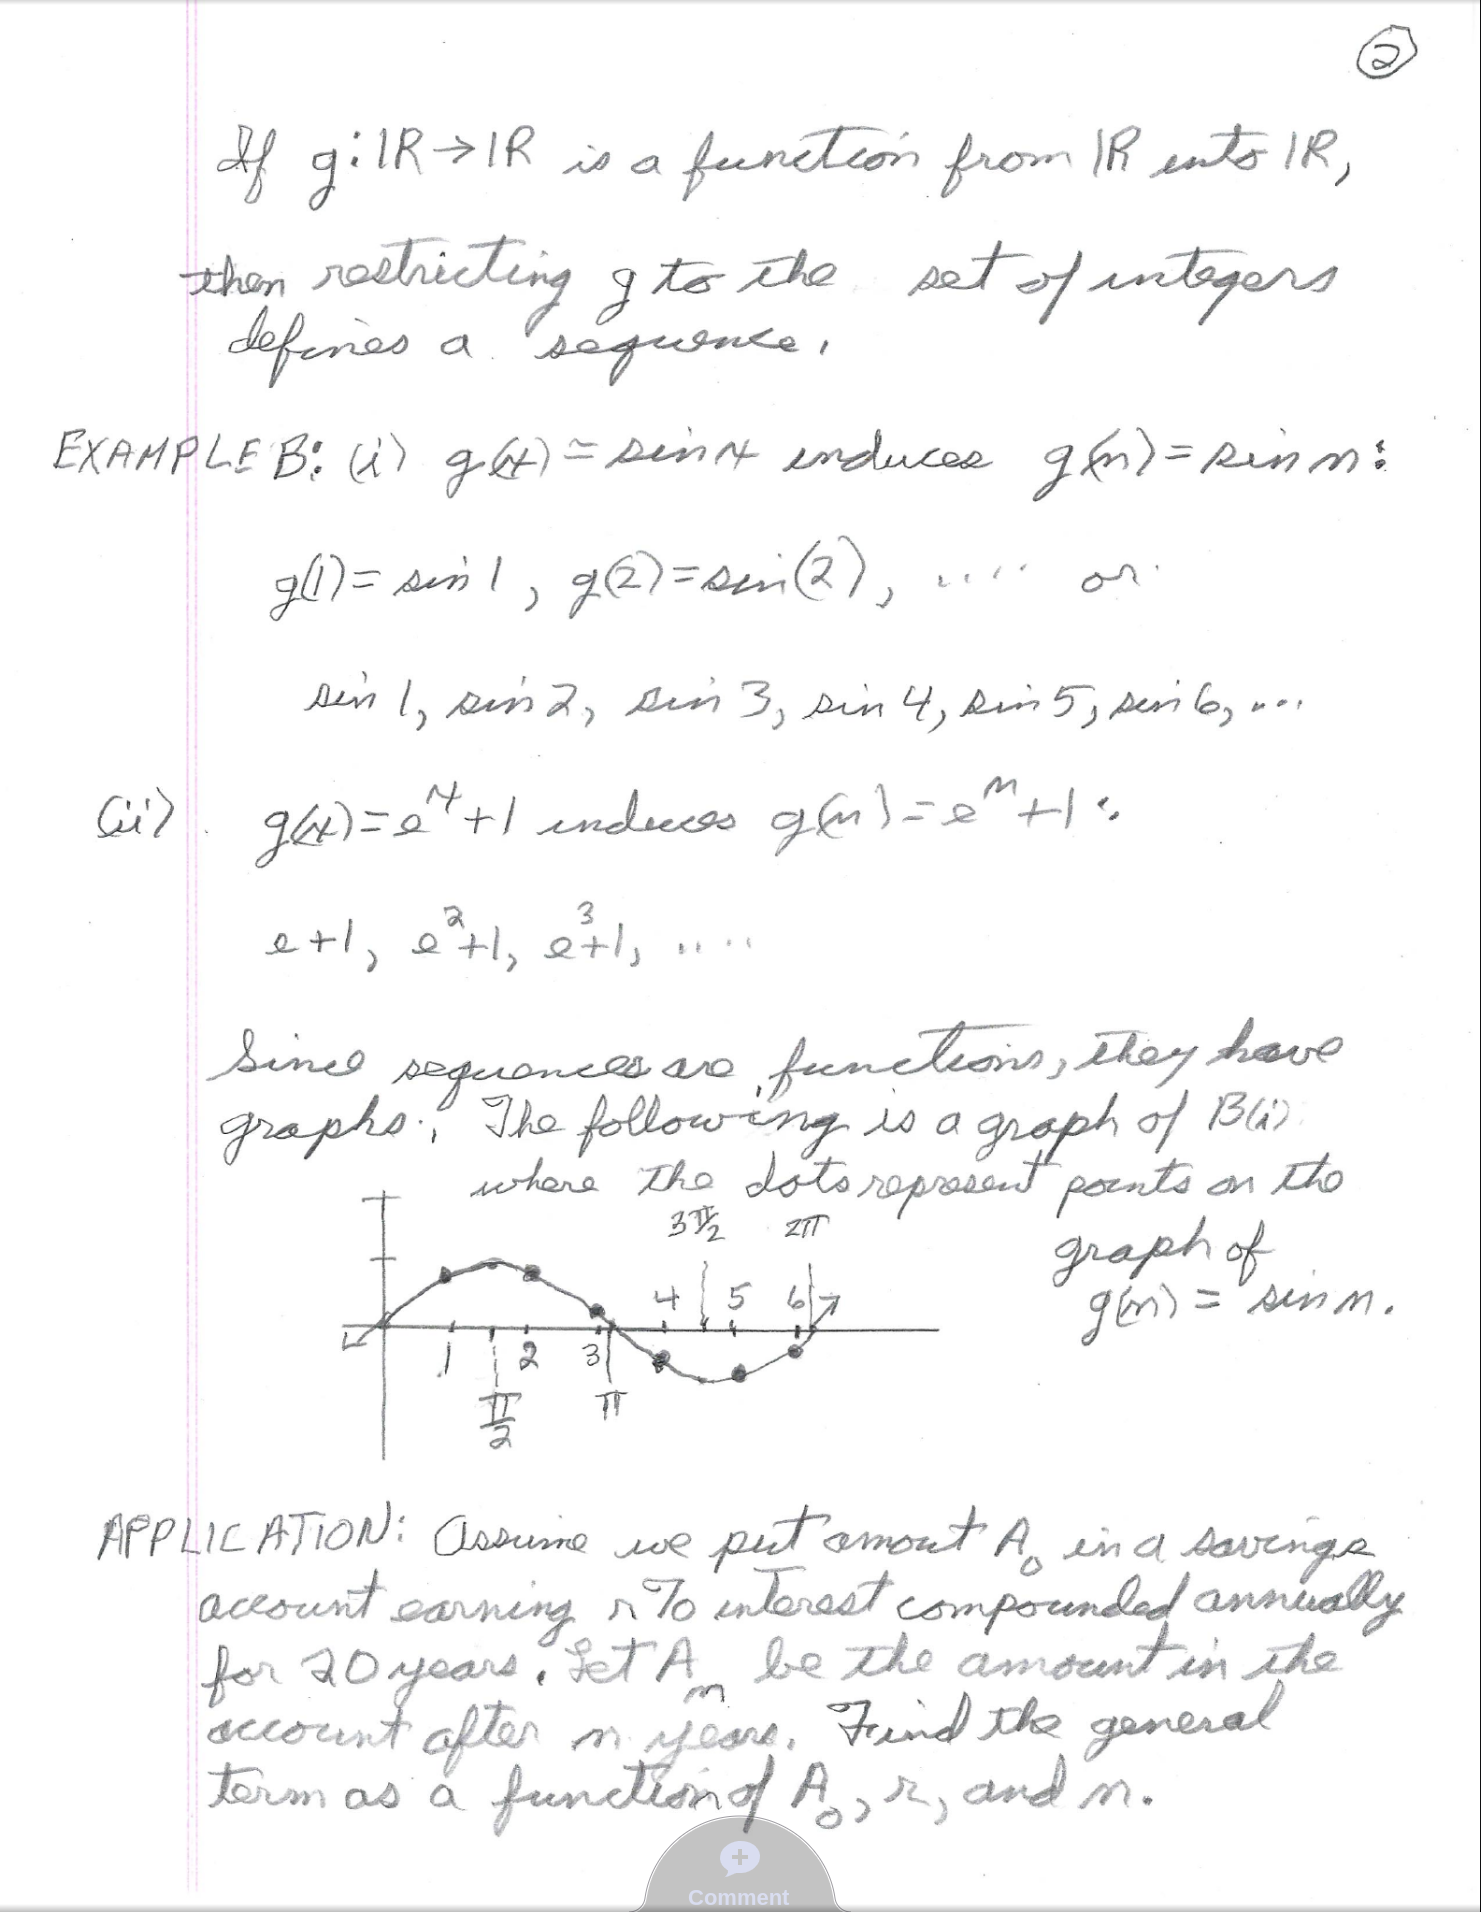 ②
If g: ℝ → ℝ is a function from ℝ into ℝ,
then restricting g to the set of integers
defines a sequence.
EXAMPLE B: (i) g(x) = sin x induces g(n) = sin n:
g(1) = sin 1, g(2) = sin(2), .... or
sin 1, sin 2, sin 3, sin 4, sin 5, sin 6, ...
(ii) g(x) = e^x + 1 induces g(n) = e^n + 1:
e+1, e^2+1, e^3+1, ....
Since sequences are functions, they have
graphs. The following is a graph of B(i)
where the dots represent points on the
3π/2 2π
graph of
g(n) = sin n.
4 5 6
1 2 3
π/2 π
APPLICATION: Assume we put amout A_0 in a savings
account earning r% interest compounded annually
for 20 years. Let A_n be the amount in the
account after n years. Find the general
term as a function of A_0, r, and n.
Comment